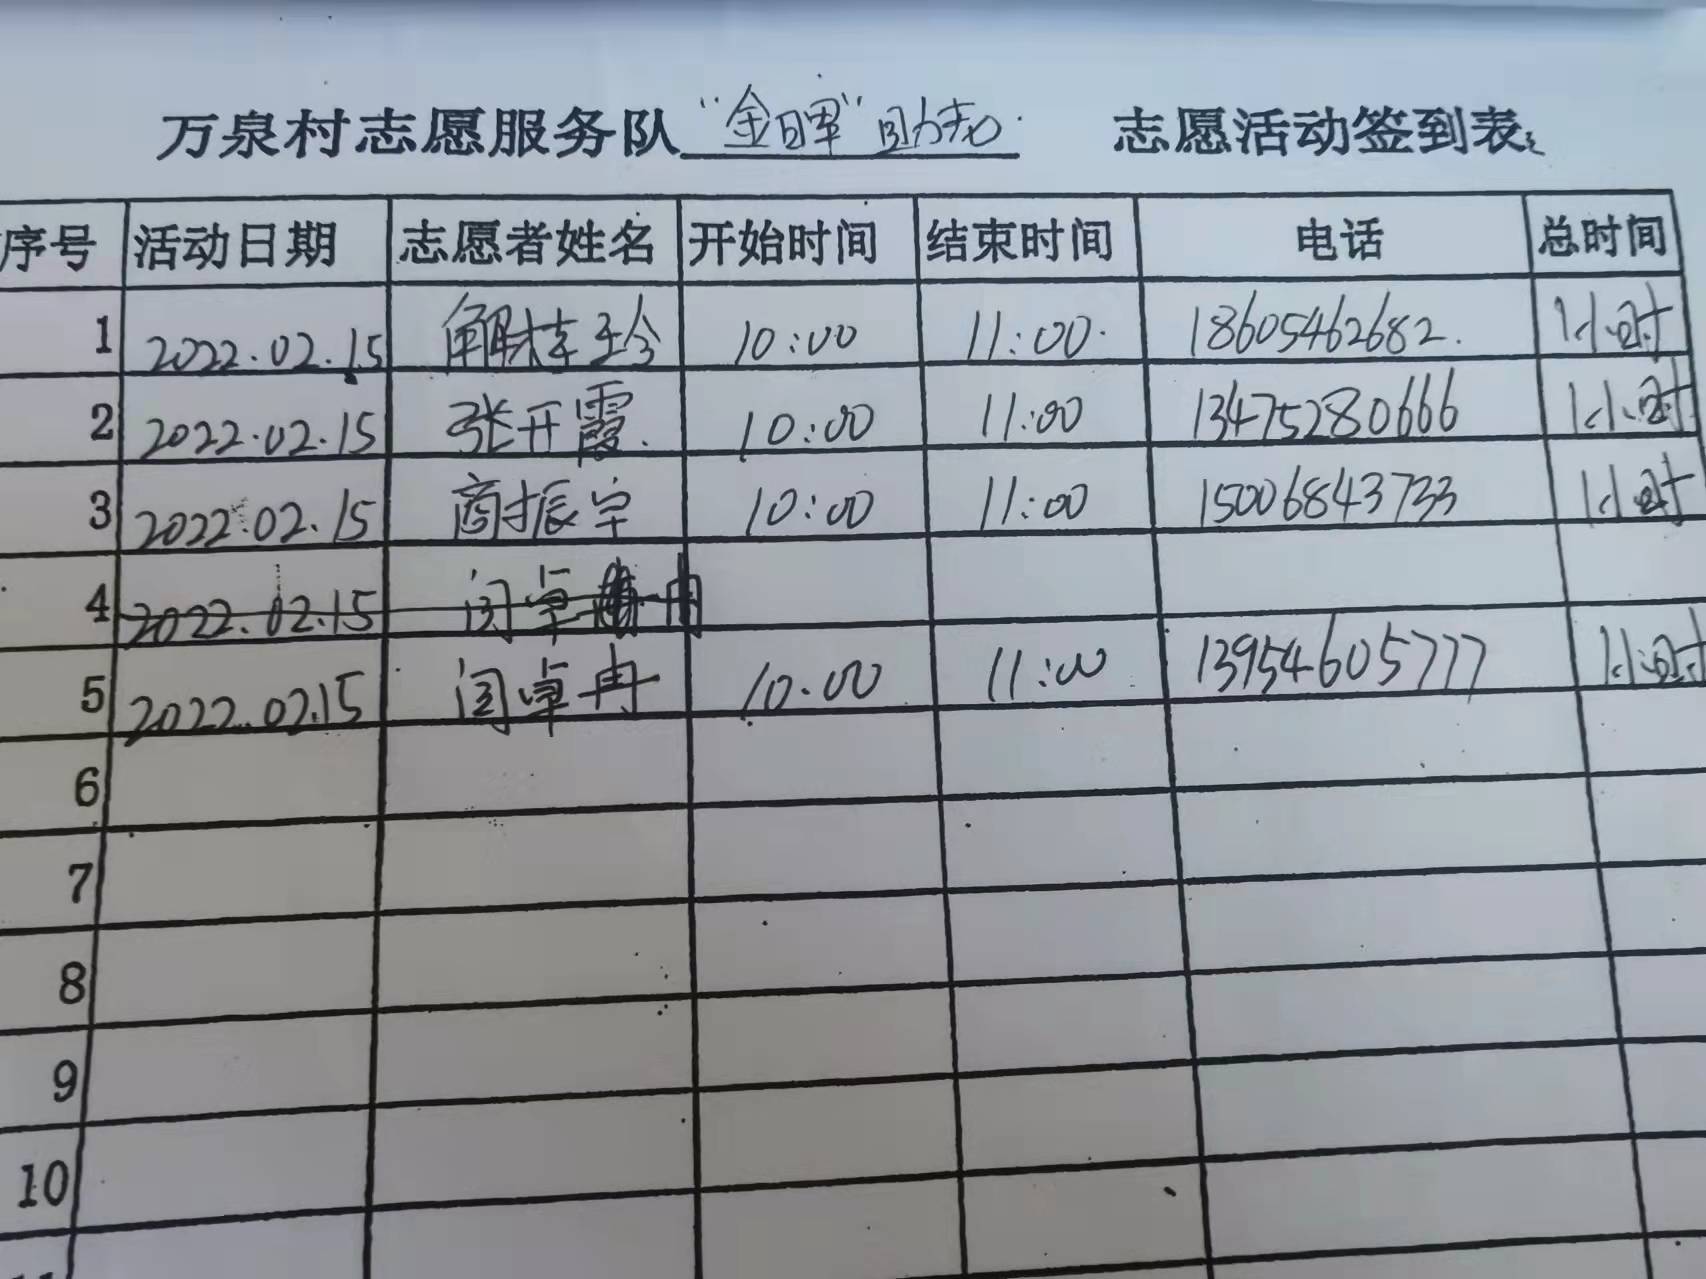 万泉村志愿服务队 "金晖"助老 志愿活动签到表
序号 活动日期 志愿者姓名 开始时间 结束时间 电话 总时间
1 2022.02.15 解桂玲 10:00 11:00 18605462682 1小时
2 2022.02.15 张开霞 10:00 11:00 13475280666 1小时
3 2022.02.15 商振宇 10:00 11:00 15006843733 1小时
4 2022.02.15 闫卓冉
5 2022.02.15 闫卓冉 10:00 11:00 13954605777 1小时
6
7
8
9
10